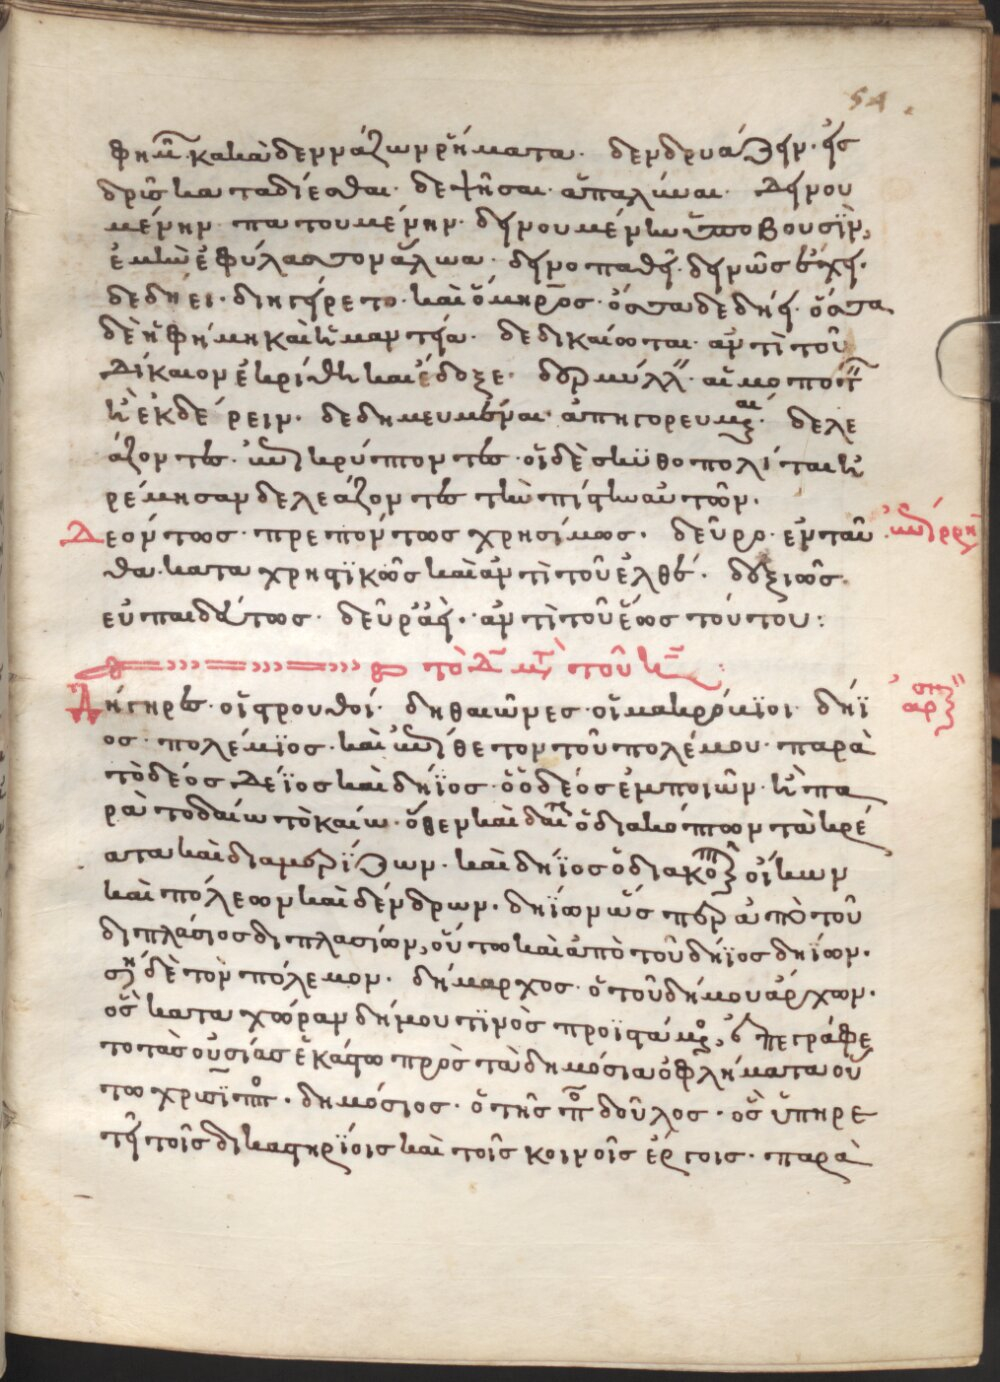 54
φησὶ κακὰ δεννάζων ῥήματα. δενδρυάζειν. εἰς
δρῦς καταδύεσθαι. δεψῆσαι. ἁπαλῦναι. Δεινου
μένην. πατουμένην. δεινουμένην ὑπο βουσὶν,
ἐμὴν ἐφύλαττον ἅλωα. δεινοπαθεῖ. δεινῶς ἔχει.
δεδήει. διηγείρετο. καὶ ὅμηρος. ὄσσα δεδήει. ὄσσα
δὲ ἡ φήμη καὶ ἡ μαντεία. δεδικαίωται. ἀντὶ τοῦ
Δίκαιον ἐκρίθη καὶ ἔδοξε.
ἢ ἐκδέρειν. δεδημευμέναι. ἀπηγορευμέναι. δελε
άζοντες. κρύπτοντες. οἱ δὲ σκυθοπολίται ἠ
ρέμησαν δελεάζοντες τὴν πίστιν αὐτῶν.
Δεόντως. πρεπόντως χρησίμως. δεῦρο. ἐνταῦ
θα. κατα χρηστικῶς καὶ ἀντὶ τοῦ ἐλθέ. δεξιῶς.
εὐπαιδεύτως. δεῦρ' ἀεί. ἀντὶ τοῦ ἕως τούτου:
τὸ Δ μετὰ τοῦ η.
Δηγηρες. οἱ στρουθοί. δηθαιῶνες. οἱ μακρόβιοι. δήϊ
ος. πολέμιος. καὶ ἐπίθετον τοῦ πολέμου. παρὰ
τὸ δέος Δέϊος καὶ δήϊος. ὁ δέος ἐμποιῶν. ἢ πα
ρὰ το δαίω τὸ καίω. ὅθεν καὶ δαὶς ὁ διακόπτων τὰ κρέ
ατα καὶ διαμερίζων. καὶ δήϊος ὁ διακόπτων οἴκων
καὶ πόλεων καὶ δένδρων. δηΐων ὥσπερ ἀπὸ τοῦ
διπλάσιος διπλασίων, οὕτω καὶ ἀπὸ τοῦ δήϊος δηΐων.
σημαίνει δὲ τὸν πόλεμον. δήμαρχος. ὁ τοῦ δήμου ἄρχων.
ὃς κατα χώραν δήμου τινὸς προϊστάμενος, ἐπεγράφε
το τὰς οὐσίας ἑκάστω πρὸς τὰ δημόσια ὀφλήματα οὕ
τω. δημόσιος. ὁ τῆς πόλεως δοῦλος. ὃς ὑπηρε
τεῖ τοῖς δικαστηρίοις καὶ τοῖς κοινοῖς ἔργοις. παρὰ